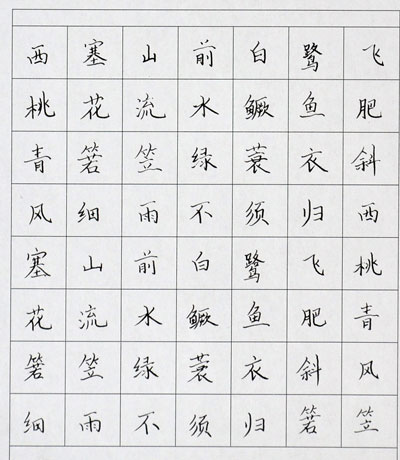 西塞山前白鹭飞
桃花流水鳜鱼肥
青箬笠绿蓑衣斜
风细雨不须归西
塞山前白鹭飞桃
花流水鳜鱼肥青
箬笠绿蓑衣斜风
细雨不须归箬笠